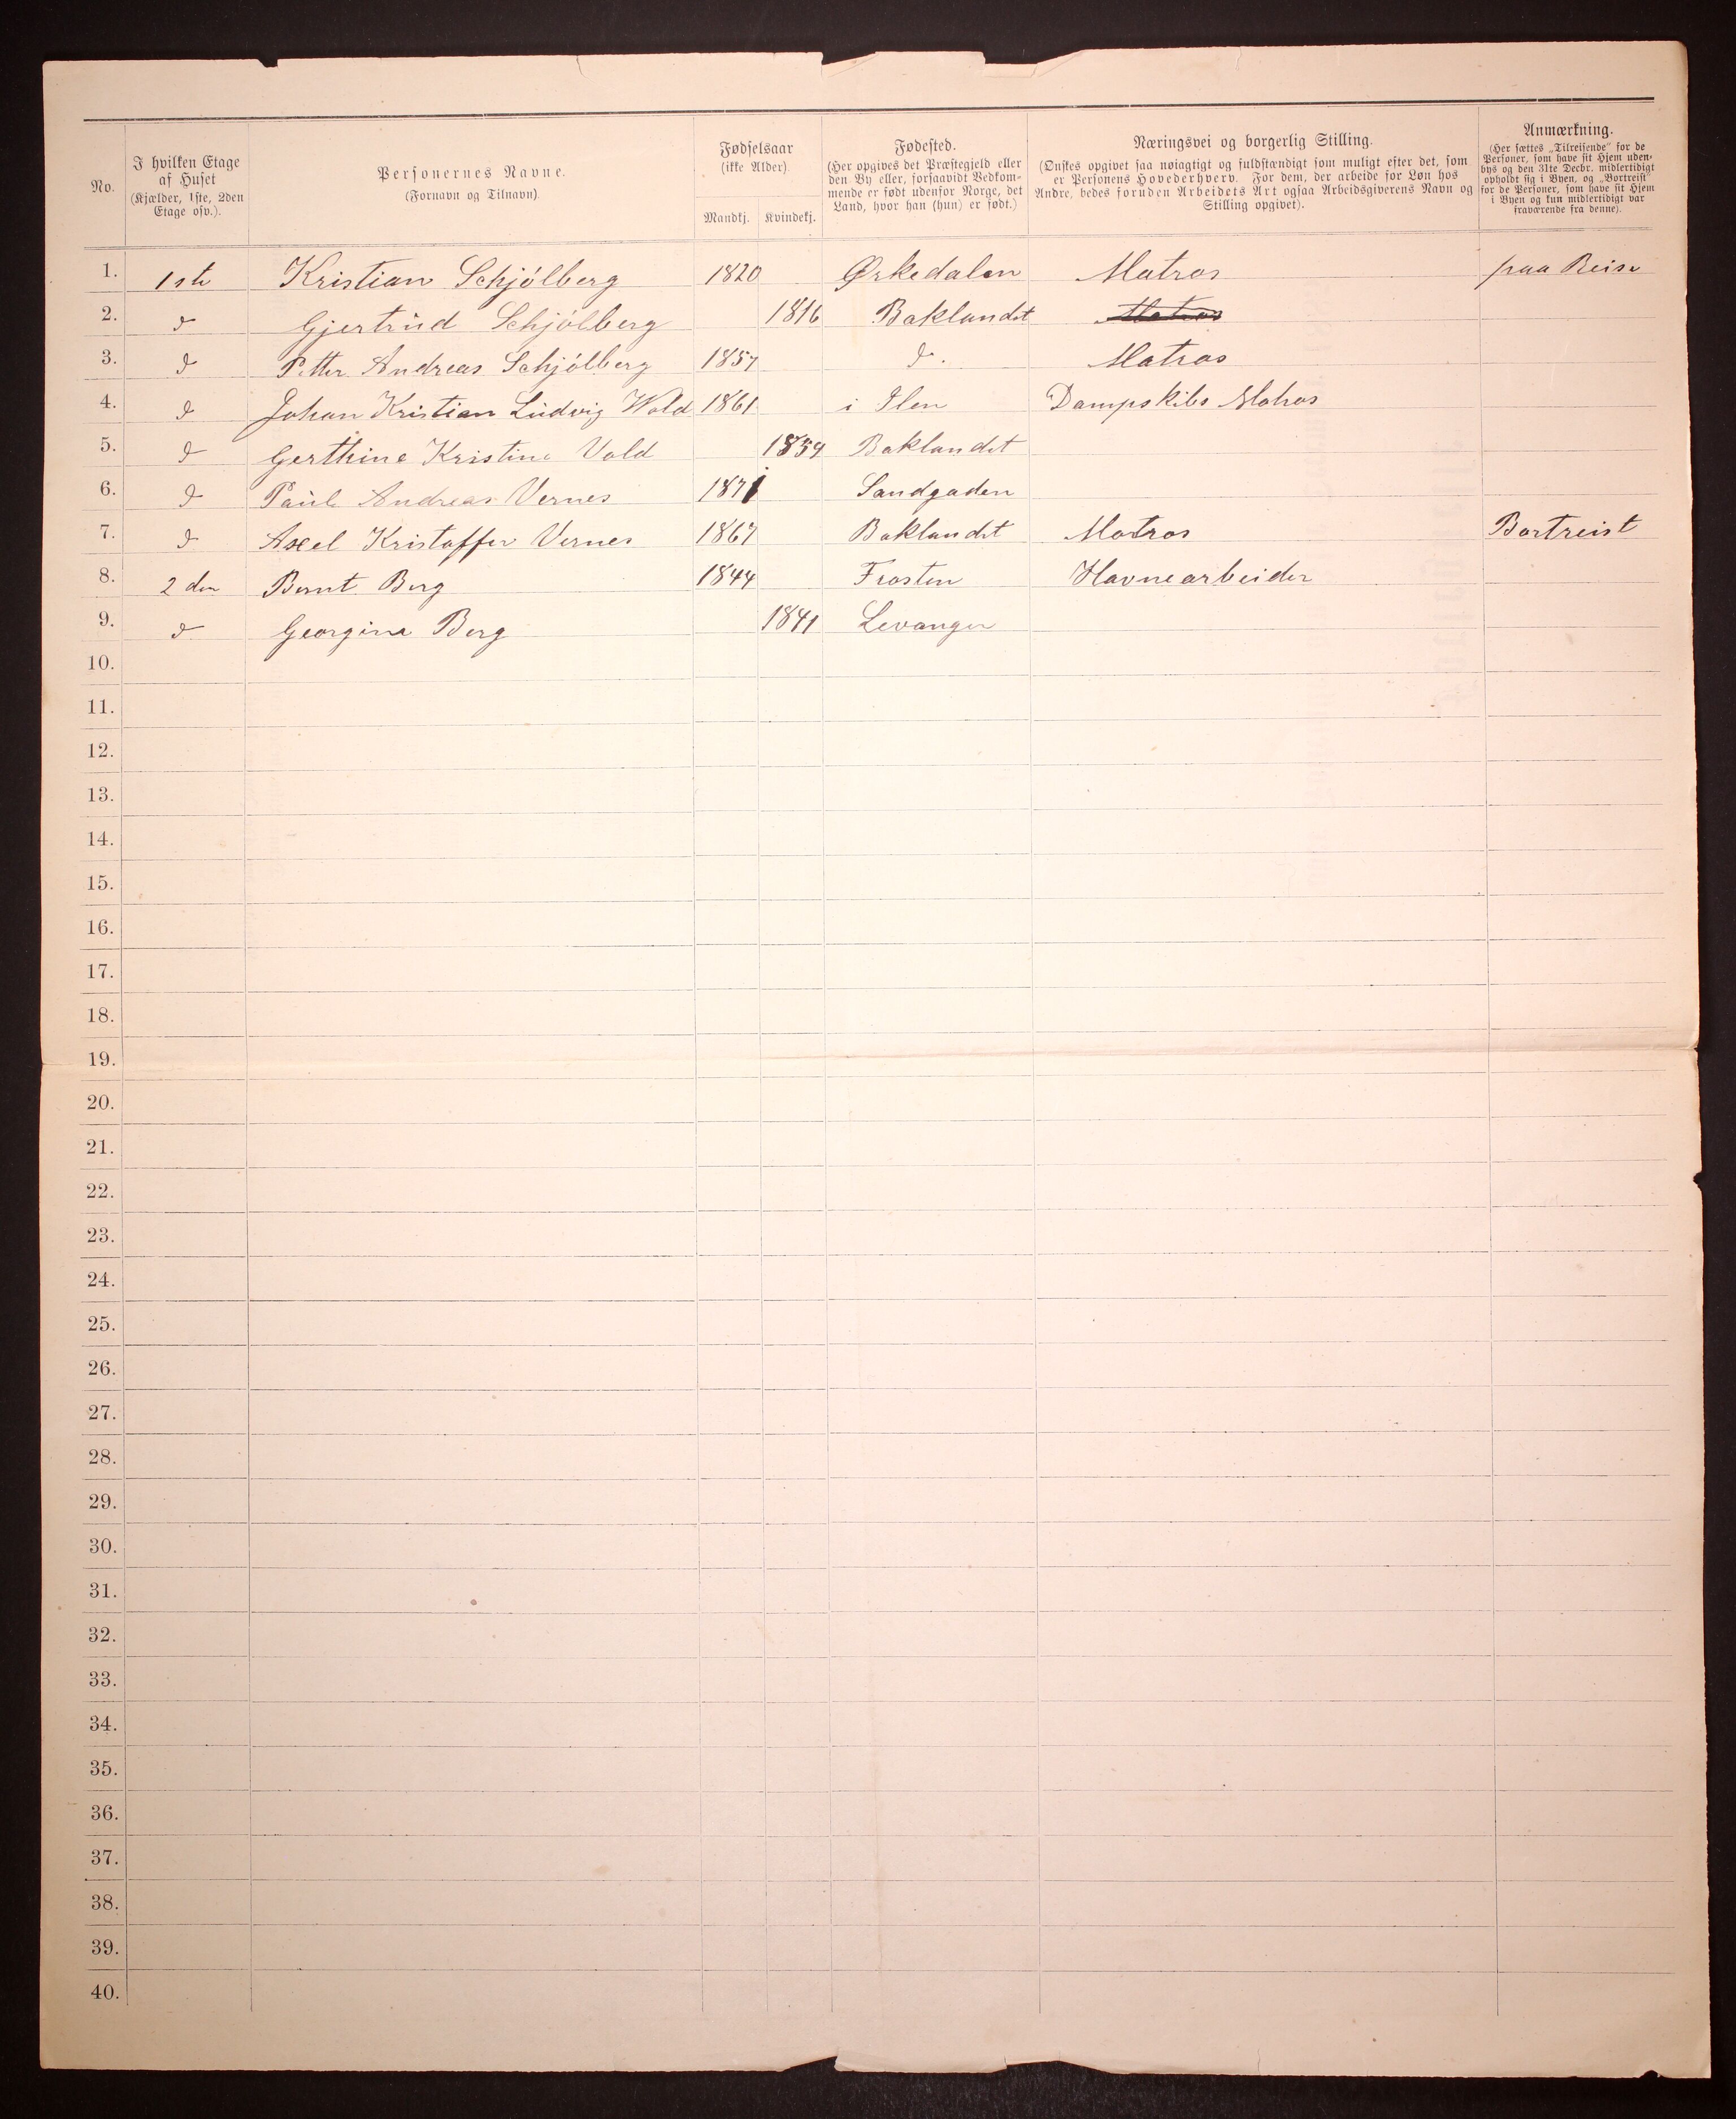 No.
I hvilken Etage
af Huset
(Kjælder, 1ste, 2den
Etage osv.).
Personernes Navne.
(Fornavn og Tilnavn).
Fødselsaar
(ikke Alder)
Mandkj. Kvindekj.
Fødested.
(Her opgives det Præstegjeld eller
den By eller, forsaavidt Vedkom-
mende er født udenfor Norge, det
Land, hvor han (hun) er født.)
Næringsvei og borgerlig Stilling.
(Ønskes opgivet saa nøiagtigt og fuldstændigt som muligt efter det, som
er Personens Hovederhverv. For dem, der arbeide for Løn hos
Andre, bedes foruden Arbeidets Art ogsaa Arbeidsgiverens Navn og
Stilling opgivet).
Anmærkning.
(Her sættes „Tilreisende" for de
Personer, som have sit Hjem uden-
bys og den 31te Decbr. midlertidigt
opholdt sig i Byen, og „Bortreist"
for de Personer, som have sit Hjem
i Byen og kun midlertidigt var
fraværende fra denne).
1. 1ste Kristian Schjólberg 1820 Ørkedalen Matros paa Reise
2. d Gjertrúd Schjólberg 1816 Baklandet Matros
3. d Petter Andreas Schjólberg 1857 d. Matros
4. d Johan Kristian Lúdvig Wold 1861 i Ilen Dampskibs Matros
5. d Gerthine Kristine Vold 1859 Baklandet
6. d Paúl Andreas Vernes 1871 Sandgaden
7. d Axel Kristoffer Vernes 1867 Baklandet Matros Bortreist
8. 2den Bernt Berg 1844 Frosten Havnearbeider
9. d Georgina Berg 1841 Levanger
10.
11.
12.
13.
14.
15.
16.
17.
18.
19.
20.
21.
22.
23.
24.
25.
26.
27.
28.
29.
30.
31.
32.
33.
34.
35.
36.
37.
38.
39.
40.